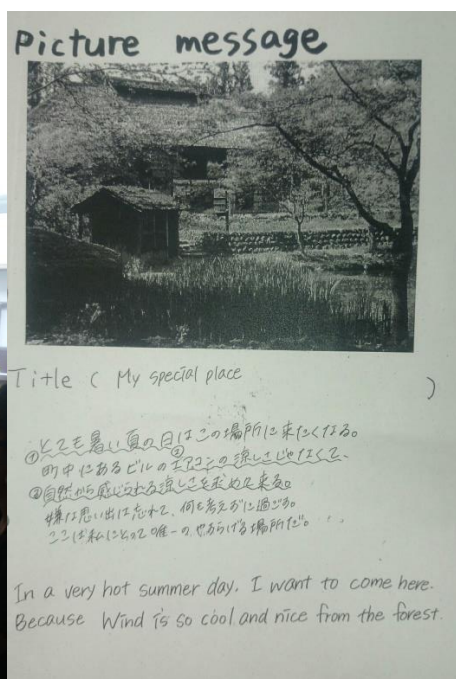 Picture message
Title ( My special place )
①とても暑い夏の日はこの場所に来たくなる。
町中にあるビルのエアコンの涼しさじゃなくて、
②自然から感じられる涼しさを求めて来る。
嫌な思い出は忘れて、何も考えずに過ごす。
ここは私にとって唯一のやわらげる場所だ。
In a very hot summer day. I want to come here.
Because Wind is so cool and nice from the forest.